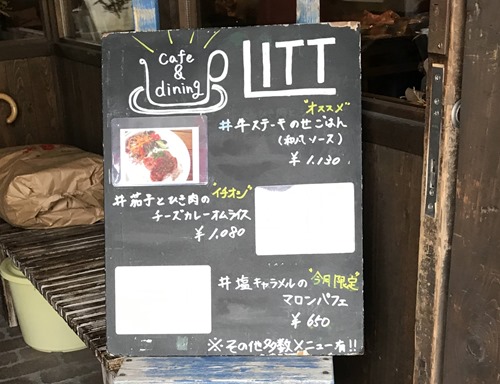 Cafe
&
dining
LITT
オススメ
#牛ステーキのせごはん
(和風ソース)
¥1.130
イチオシ
#茄子とひき肉の
チーズカレーオムライス
¥1,080
今月限定
#塩キャラメルの
マロンパフェ
¥650
※その他多数メニュー有!!